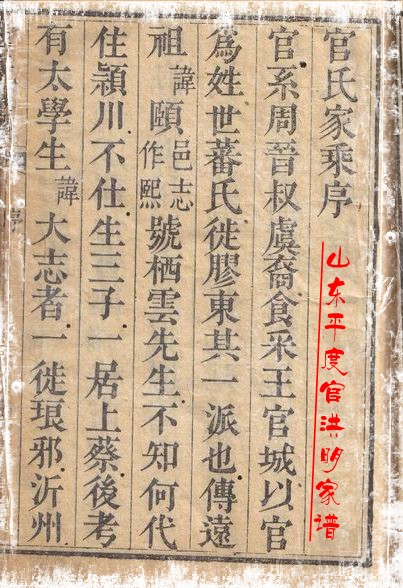 官氏家乘序
官系周晉叔虞裔食采王官城以官
爲姓世蕃氏徙膠東其一派也傳遠
祖諱頤邑志作熙號栖雲先生不知何代
住潁川不仕生三子一居上蔡後考
有太學生諱大志者一徙琅邪沂州
序
山东平度官洪明家谱